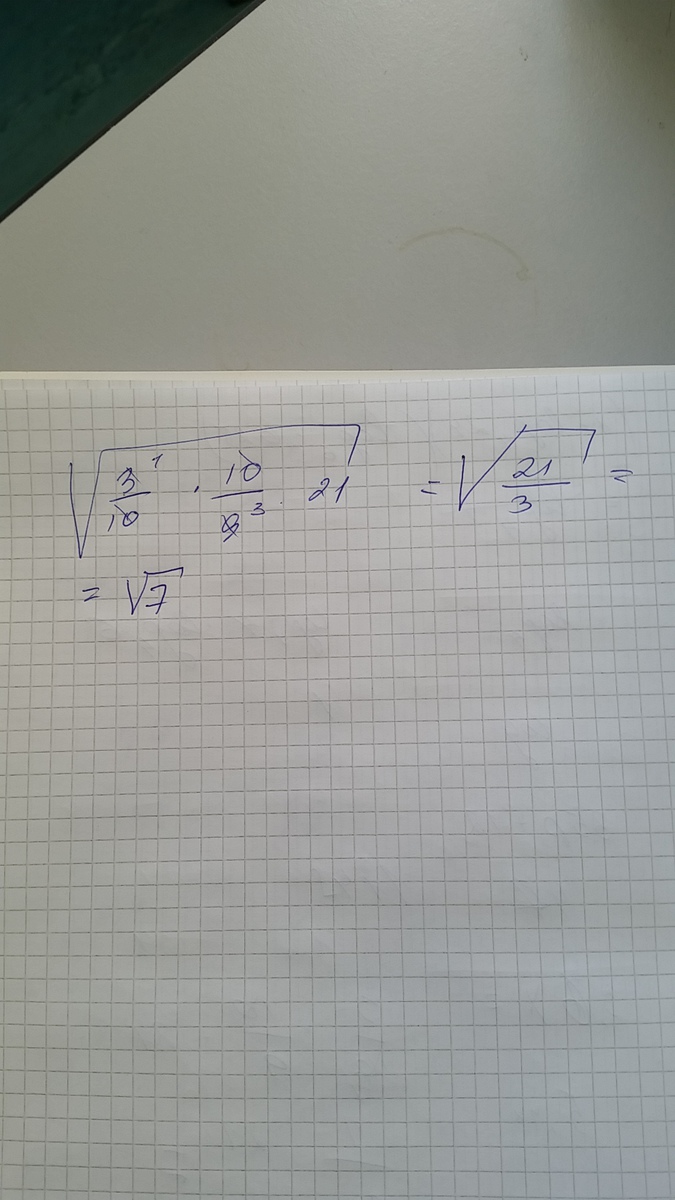 √(3¹/10 · 10/9³ · 21) = √(21/3) =
= √7